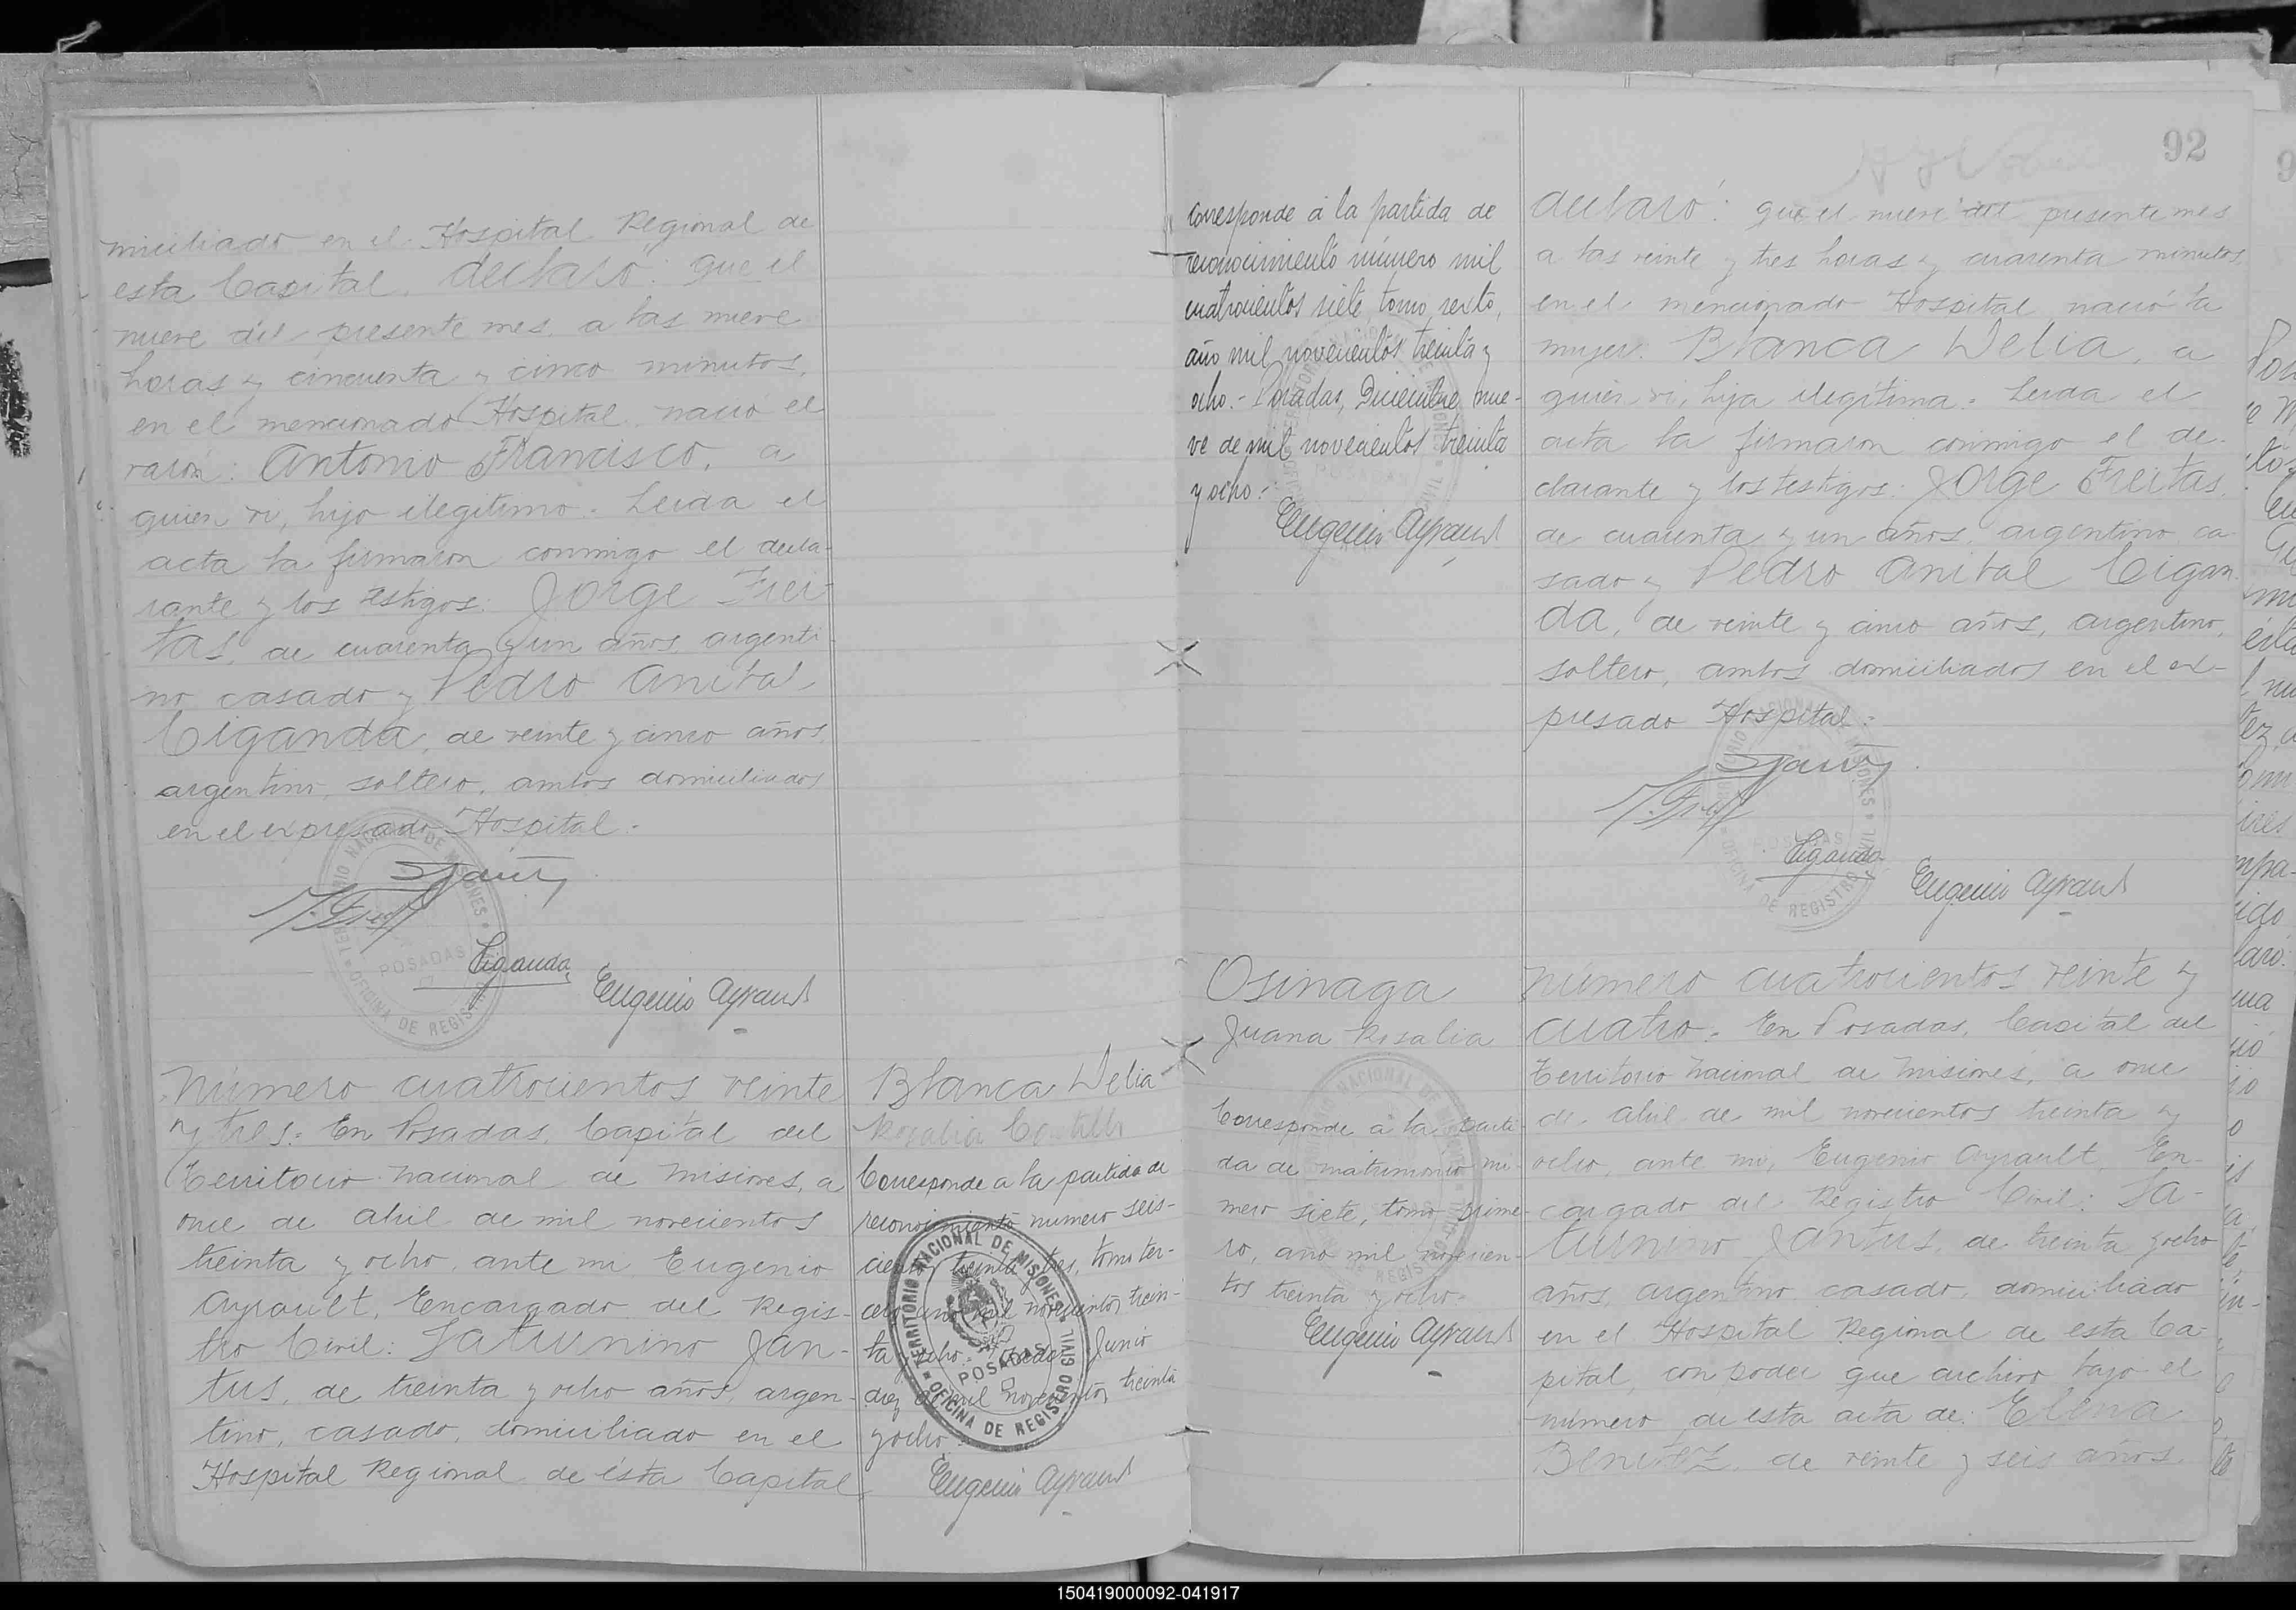 miciliado en el Hospital Regional de
esta Capital, declaró: que el
nueve del presente mes, a las nueve
horas y cincuenta y cinco minutos,
en el mencionado Hospital nació el
varón: Antonio Francisco, a
quien vi, hijo ilegítimo.- Leida el
acta la firmaron conmigo el decla-
rante y los testigos: Jorge Frei-
tas, de cuarenta y un años, argenti-
no, casado y Pedro Anibal
Ciganda, de veinte y cinco años,
argentino, soltero, ambos domiciliados
en el expresado Hospital.-
TERRITORIO NACIONAL DE MISIONES
POSADAS
OFICINA DE REGISTRO CIVIL
Ciganda
Eugenio Ayrault
Número cuatrocientos veinte
y tres: En Posadas, Capital del
Territorio Nacional de Misiones, a
once de abril de mil novecientos
treinta y ocho, ante mi Eugenio
Ayrault, Encargado del Regis-
tro Civil: Saturnino Jan-
tus, de treinta y ocho años, argen-
tino, casado, domiciliado en el
Hospital Regional de ésta Capital
Blanca Delia
Rosalia
Corresponde a la partida de
reconocimiento numero seis-
cientos treinta y tres, tomo ter-
cero año mil novecientos trein-
ta y ocho.- Posadas, Junio
diez de mil novecientos treinta
y ocho.-
TERRITORIO NACIONAL DE MISIONES
POSADAS
OFICINA DE REGISTRO CIVIL
Eugenio Ayrault
92
Corresponde á la partida de
reconocimiento número mil
cuatrocientos siete, tomo sexto,
año mil novecientos treinta y
ocho.- Posadas, Diciembre nue-
ve de mil novecientos treinta
y ocho.-
Eugenio Ayrault
declaró: que el nueve del presente mes
a las veinte y tres horas y cuarenta minutos,
en el mencionado Hospital nació la
mujer: Blanca Delia, a
quien vi, hija ilegítima.- Leida el
acta la firmaron conmigo el de-
clarante y los testigos: Jorge Freitas,
de cuarenta y un años, argentino, ca-
sado y Pedro Anibal Cigan-
da, de veinte y cinco años, argentino,
soltero, ambos domiciliados en el ex-
presado Hospital.-
TERRITORIO NACIONAL DE MISIONES
POSADAS
OFICINA DE REGISTRO CIVIL
Ciganda
Eugenio Ayrault
Osinaga
Juana Rosalia
Corresponde á la parti-
da de matrimonio nú-
mero siete, tomo prime-
ro, año mil novecien-
tos treinta y ocho.-
Eugenio Ayrault
Número cuatrocientos veinte y
cuatro.- En Posadas, Capital del
Territorio Nacional de Misiones, a once
de abril de mil novecientos treinta y
ocho, ante mi, Eugenio Ayrault, En-
cargado del Registro Civil: Sa-
turnino Jantus, de treinta y ocho
años, argentino, casado, domiciliado
en el Hospital Regional de esta Ca-
pital, con poder que archivo bajo el
número de esta acta de: Elena
Benitez, de veinte y seis años
150419000092-041917